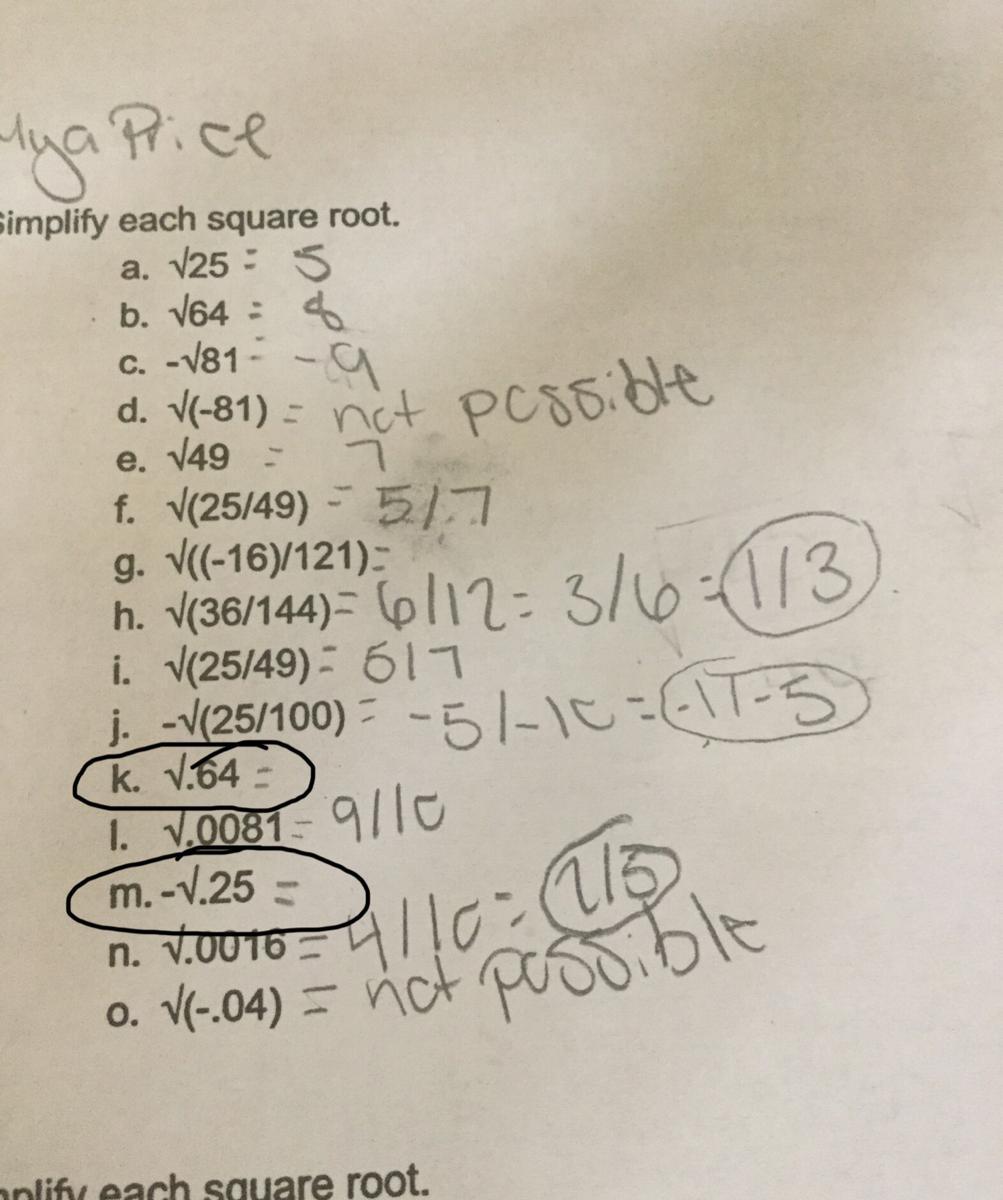 Mya Price
Simplify each square root.
a. √25 = 5
b. √64 = 8
c. -√81 = -9
d. √(-81) = not possible
e. √49 = 7
f. √(25/49) = 5/7
g. √((-16)/121)=
h. √(36/144)= 6/12 = 3/6 = 1/3
i. √(25/49) = 5/7
j. -√(25/100) = -5/-10 =
k. √.64 =
l. √.0081 = 9/10
m. -√.25 =
n. √.0016 = 4/10 = 2/5
o. √(-.04) = not possible
each square root.